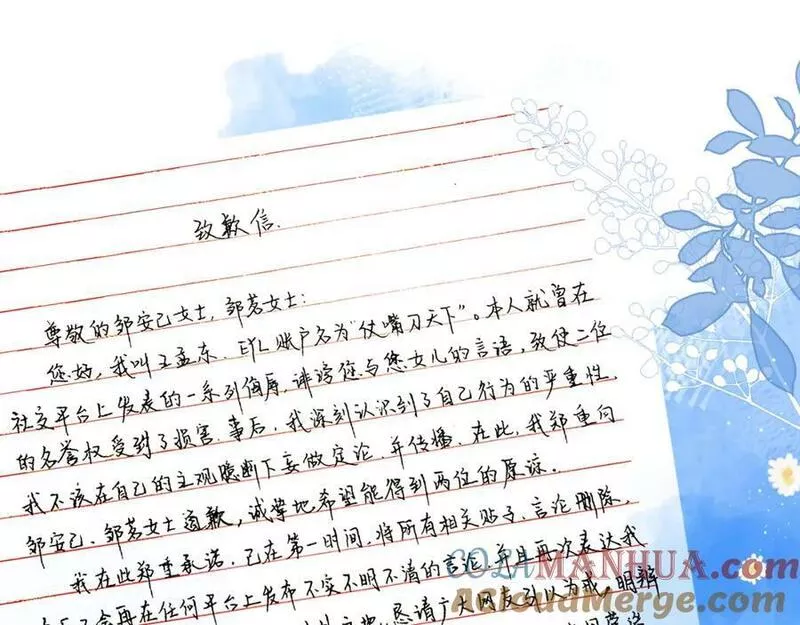 致歉信.
尊敬的邹安己女士, 邹茗女士:
您好, 我叫王孟东, EYL账户名为“仗嘴刀天下”。本人就曾在
社交平台上发表的一系列侮辱, 诽谤您与您女儿的言语, 致使二位
的名誉权受到了损害. 事后, 我深刻认识到了自己行为的严重性.
我不该在自己的主观臆断下妄做定论, 并传播. 在此, 我郑重向
邹安己. 邹茗女士道歉, 诚挚地希望能得到两位的原谅.
我在此郑重承诺. 已在第一时间, 将所有相关贴子, 言论删除,
会再在任何平台上发布不实不明不清的言论, 并且再次表达我
恳请广大网友引以为戒, 明辨
COLAMANHUA.COM
AcloudMerge.com